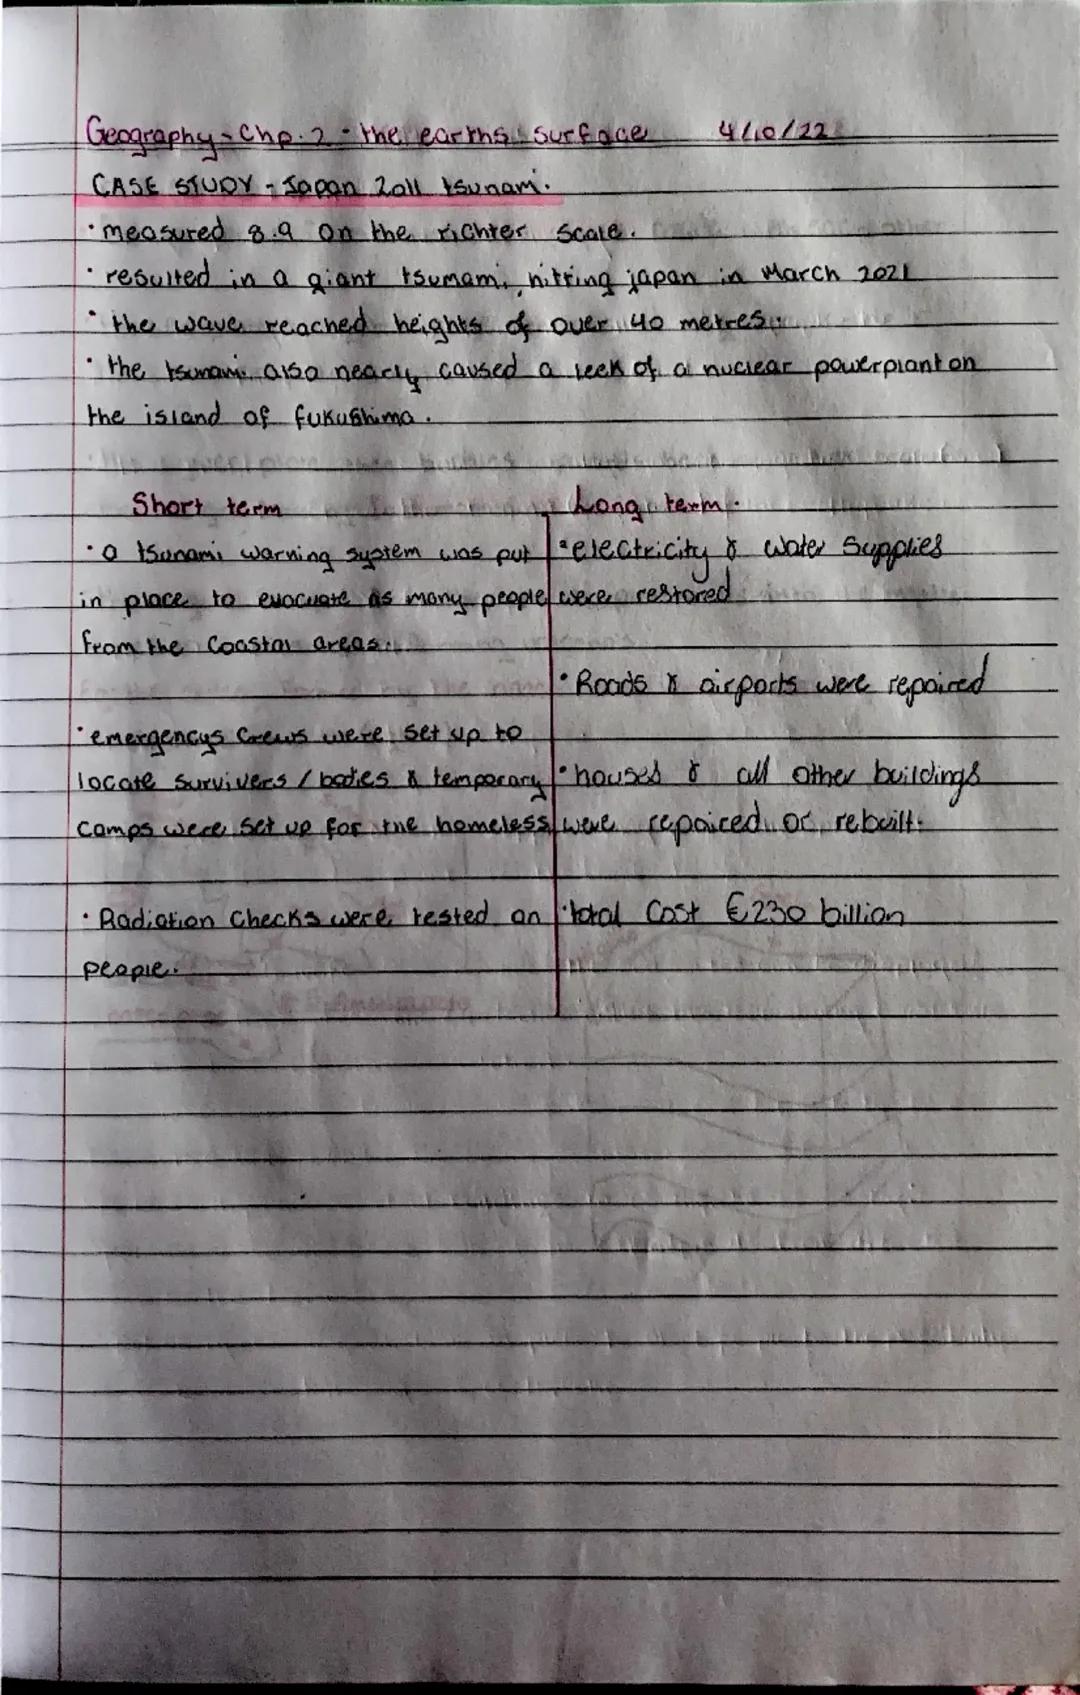 Geography - Chp. 2 - the earths surface 4/10/22
CASE STUDY - Japan 2011 tsunami.
· measured 8.9 on the richter scale.
· resulted in a giant tsumami, hitting japan in March 2021
· the wave reached heights of over 40 metres.
· the tsunami also nearly caused a leek of a nuclear powerplant on
the island of fukushima.
Short term
· a tsunami warning system was put
in place to evacuate as many people
from the coastal areas.
· emergencys crews were set up to
locate survivers / bodies & temporary
camps were set up for the homeless
· Radiation checks were tested on
people.
Long term.
· electricity & water supplies
were restored
· Roads & airports were repaired
· housed & all other buildings
were repaired or rebuilt.
· total cost €230 billion